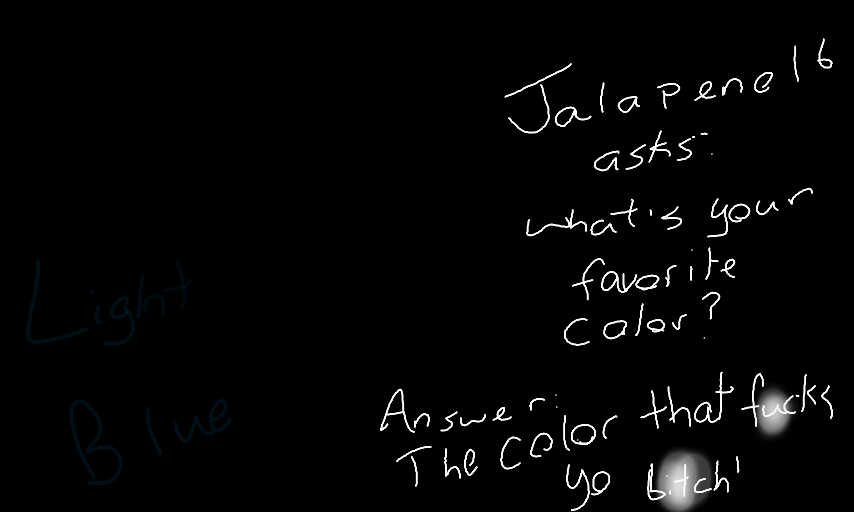 Jalapeno16
asks:
what's your
favorite
color?
Light
Blue
Answer:
The color that fucks
yo bitch'